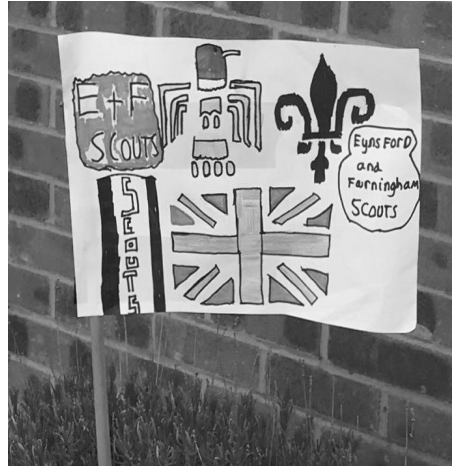 E+F
SCOUTS
EYNSFORD
and
Farningham
SCOUTS
SCOUTS